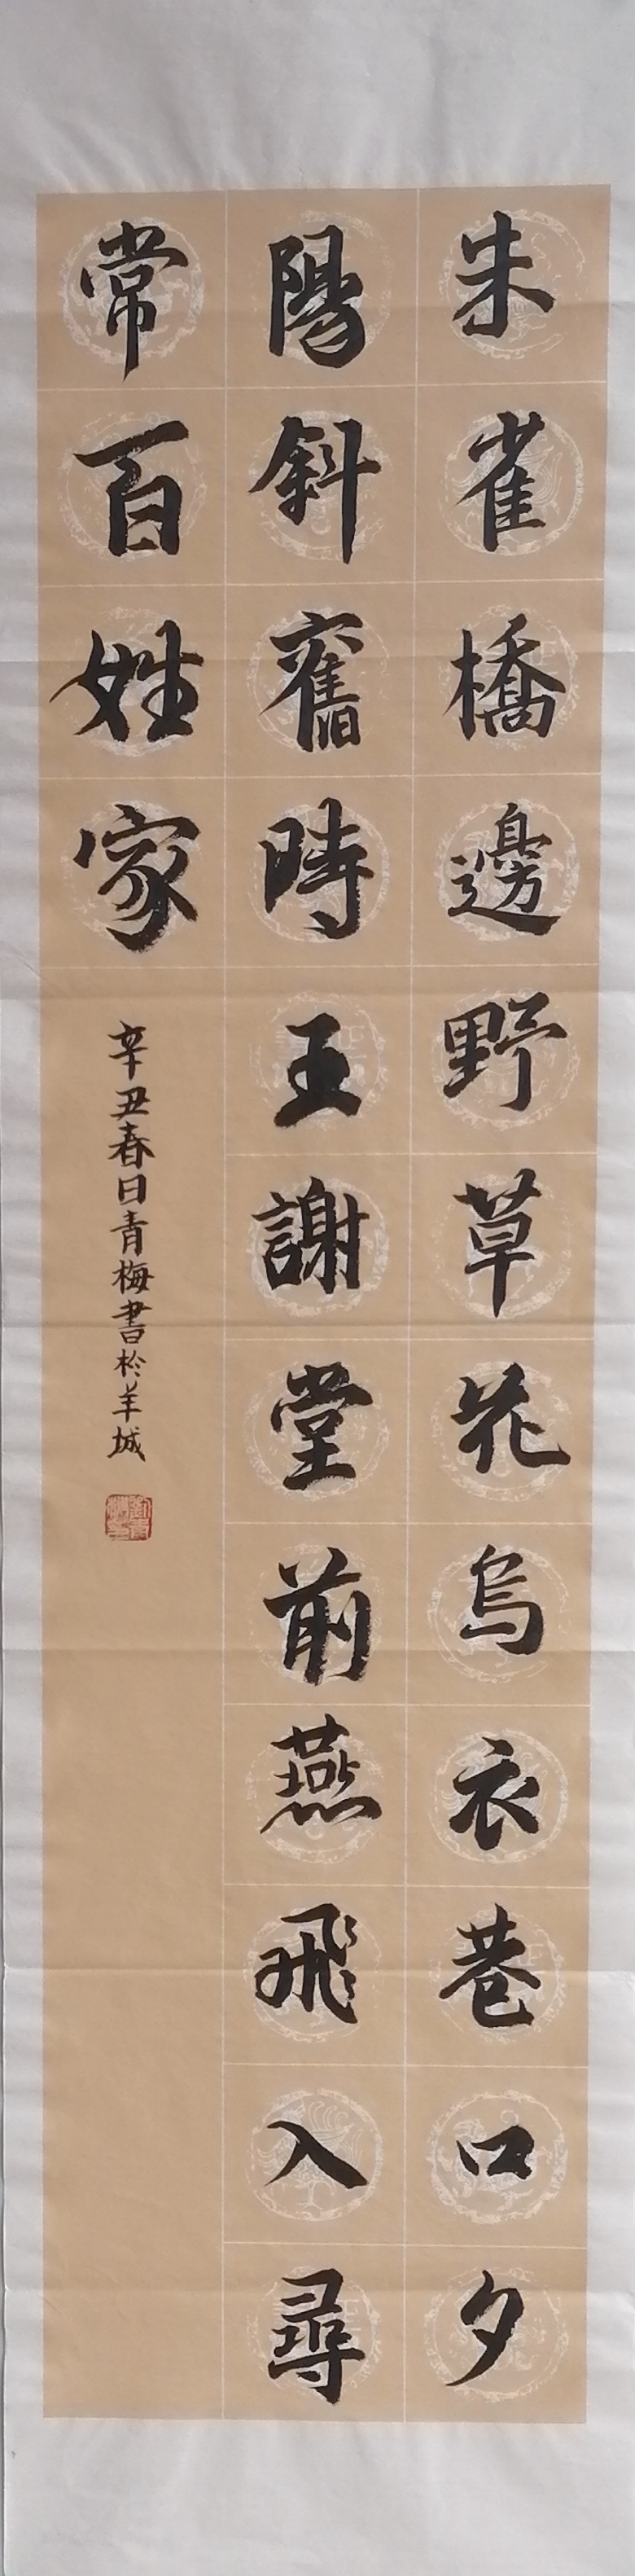 朱雀橋邊野草花烏衣巷口夕
陽斜舊時王謝堂前燕飛入尋
常百姓家
辛丑春日青梅書於羊城